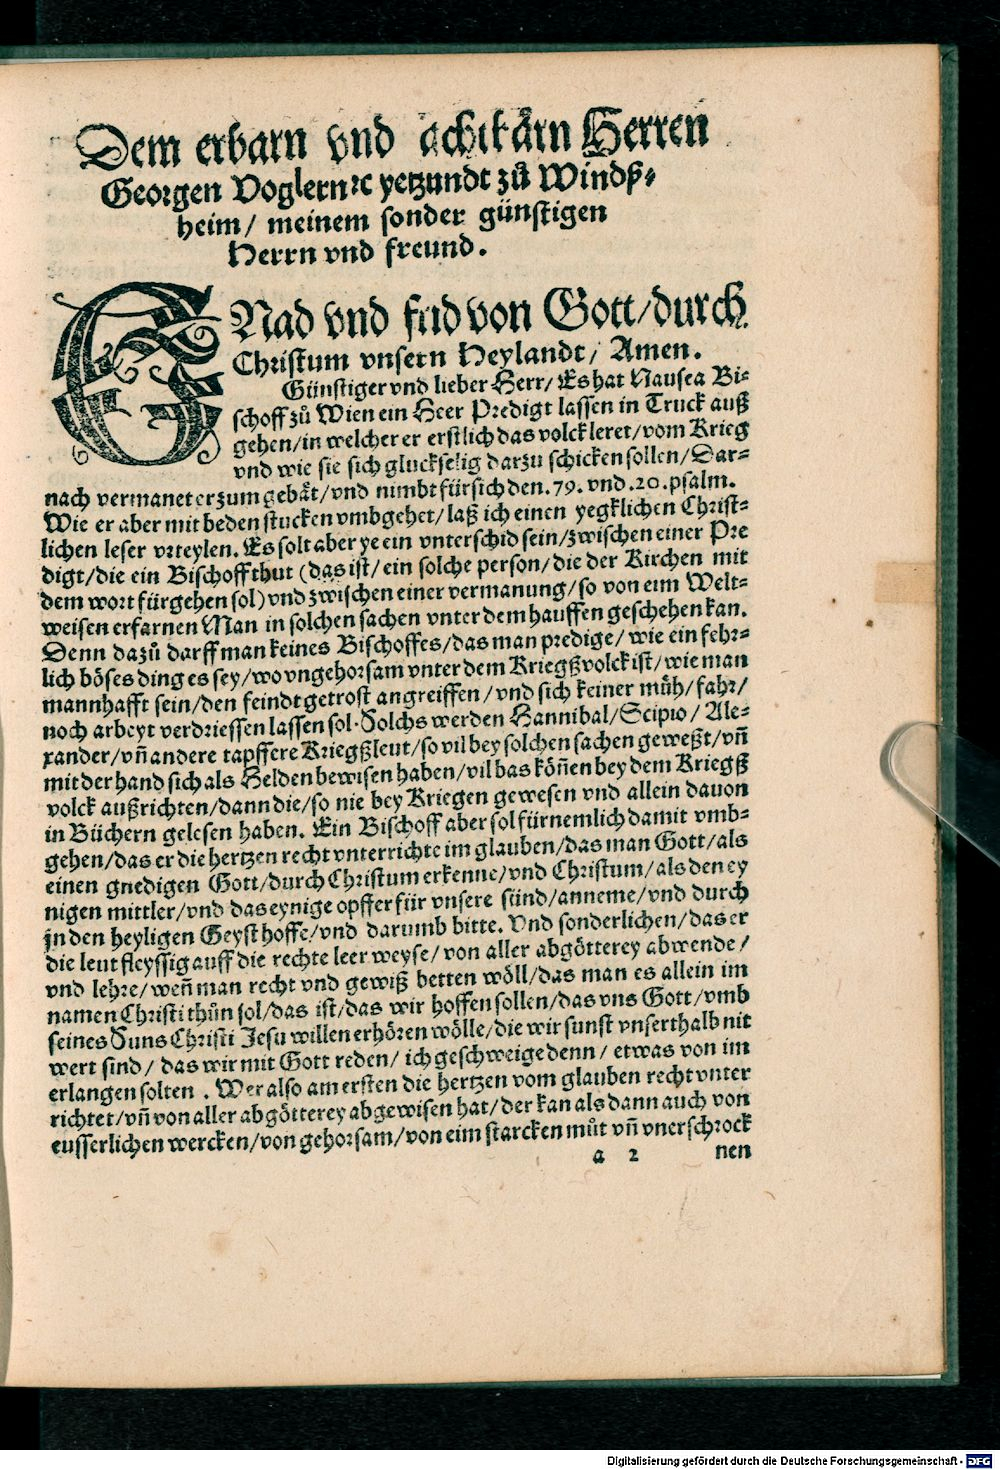 Dem erbarn vnd achtbårn Herren
Georgen Voglern ꝛc yetzundt zů Windß⸗
heim / meinem sonder günstigen
Herrn vnd freund.
GNad vnd frid von Gott / durch
Christum vnsern Heylandt / Amen.
Günstiger vnd lieber Herr / Es hat Nausea Bi⸗
schoff zů Wien ein Heer Predigt lassen in Truck auß
gehen / in welcher er erstlich das volck leret / vom Krieg
vnd wie sie sich gluckselig darzu schicken sollen / Dar⸗
nach vermanet er zum gebät / vnd nimbt für sich den .79. vnd .20. psalm.
Wie er aber mit beden stucken vmbgehet / laß ich einen yegklichen Christ⸗
lichen leser vrteylen. Es solt aber ye ein vnterschid sein / zwischen einer Pre
digt / die ein Bischoff thut (das ist / ein solche person / die der Kirchen mit
dem wort fürgehen sol) vnd zwischen einer vermanung / so von eim Welt⸗
weisen erfarnen Man in solchen sachen vnter dem hauffen geschehen kan.
Denn dazů darff man keines Bischoffes / das man predige / wie ein fehr⸗
lich böses ding es sey / wo vngehorsam vnter dem Kriegßvolck ist / wie man
mannhafft sein / den feindt getrost angreiffen / vnd sich keiner müh / fahr /
noch arbeyt verdriessen lassen sol. Solchs werden Hannibal / Scipio / Ale⸗
xander / vñ andere tapffere Kriegßleut / so vil bey solchen sachen geweßt / vñ
mit der hand sich als Helden bewisen haben / vil bas köñen bey dem Kriegß
volck außrichten / dann die / so nie bey Kriegen gewesen vnd allein dauon
in Büchern gelesen haben. Ein Bischoff aber sol fürnemlich damit vmb⸗
gehen / das er die hertzen recht vnterrichte im glauben / das man Gott / als
einen gnedigen Gott / durch Christum erkenne / vnd Christum / als den ey
nigen mittler / vnd das eynige opffer für vnsere sünd / anneme / vnd durch
jn den heyligen Geyst hoffe / vnd darumb bitte. Vnd sonderlichen / das er
die leut fleyssig auff die rechte leer weyse / von aller abgötterey abwende /
vnd lehre / weñ man recht vnd gewiß betten wöll / das man es allein im
namen Christi thůn sol / das ist / das wir hoffen sollen / das vns Gott / vmb
seines Suns Christi Jesu willen erhören wölle / die wir sunst vnserthalb nit
wert sind / das wir mit Gott reden / ich geschweige denn / etwas von im
erlangen solten . Wer also am ersten die hertzen vom glauben recht vnter
richtet / vñ von aller abgötterey abgewisen hat / der kan als dann auch von
eusserlichen wercken / von gehorsam / von eim starcken můt vñ vnerschrock
a 2 nen
Digitalisierung gefördert durch die Deutsche Forschungsgemeinschaft - DFG